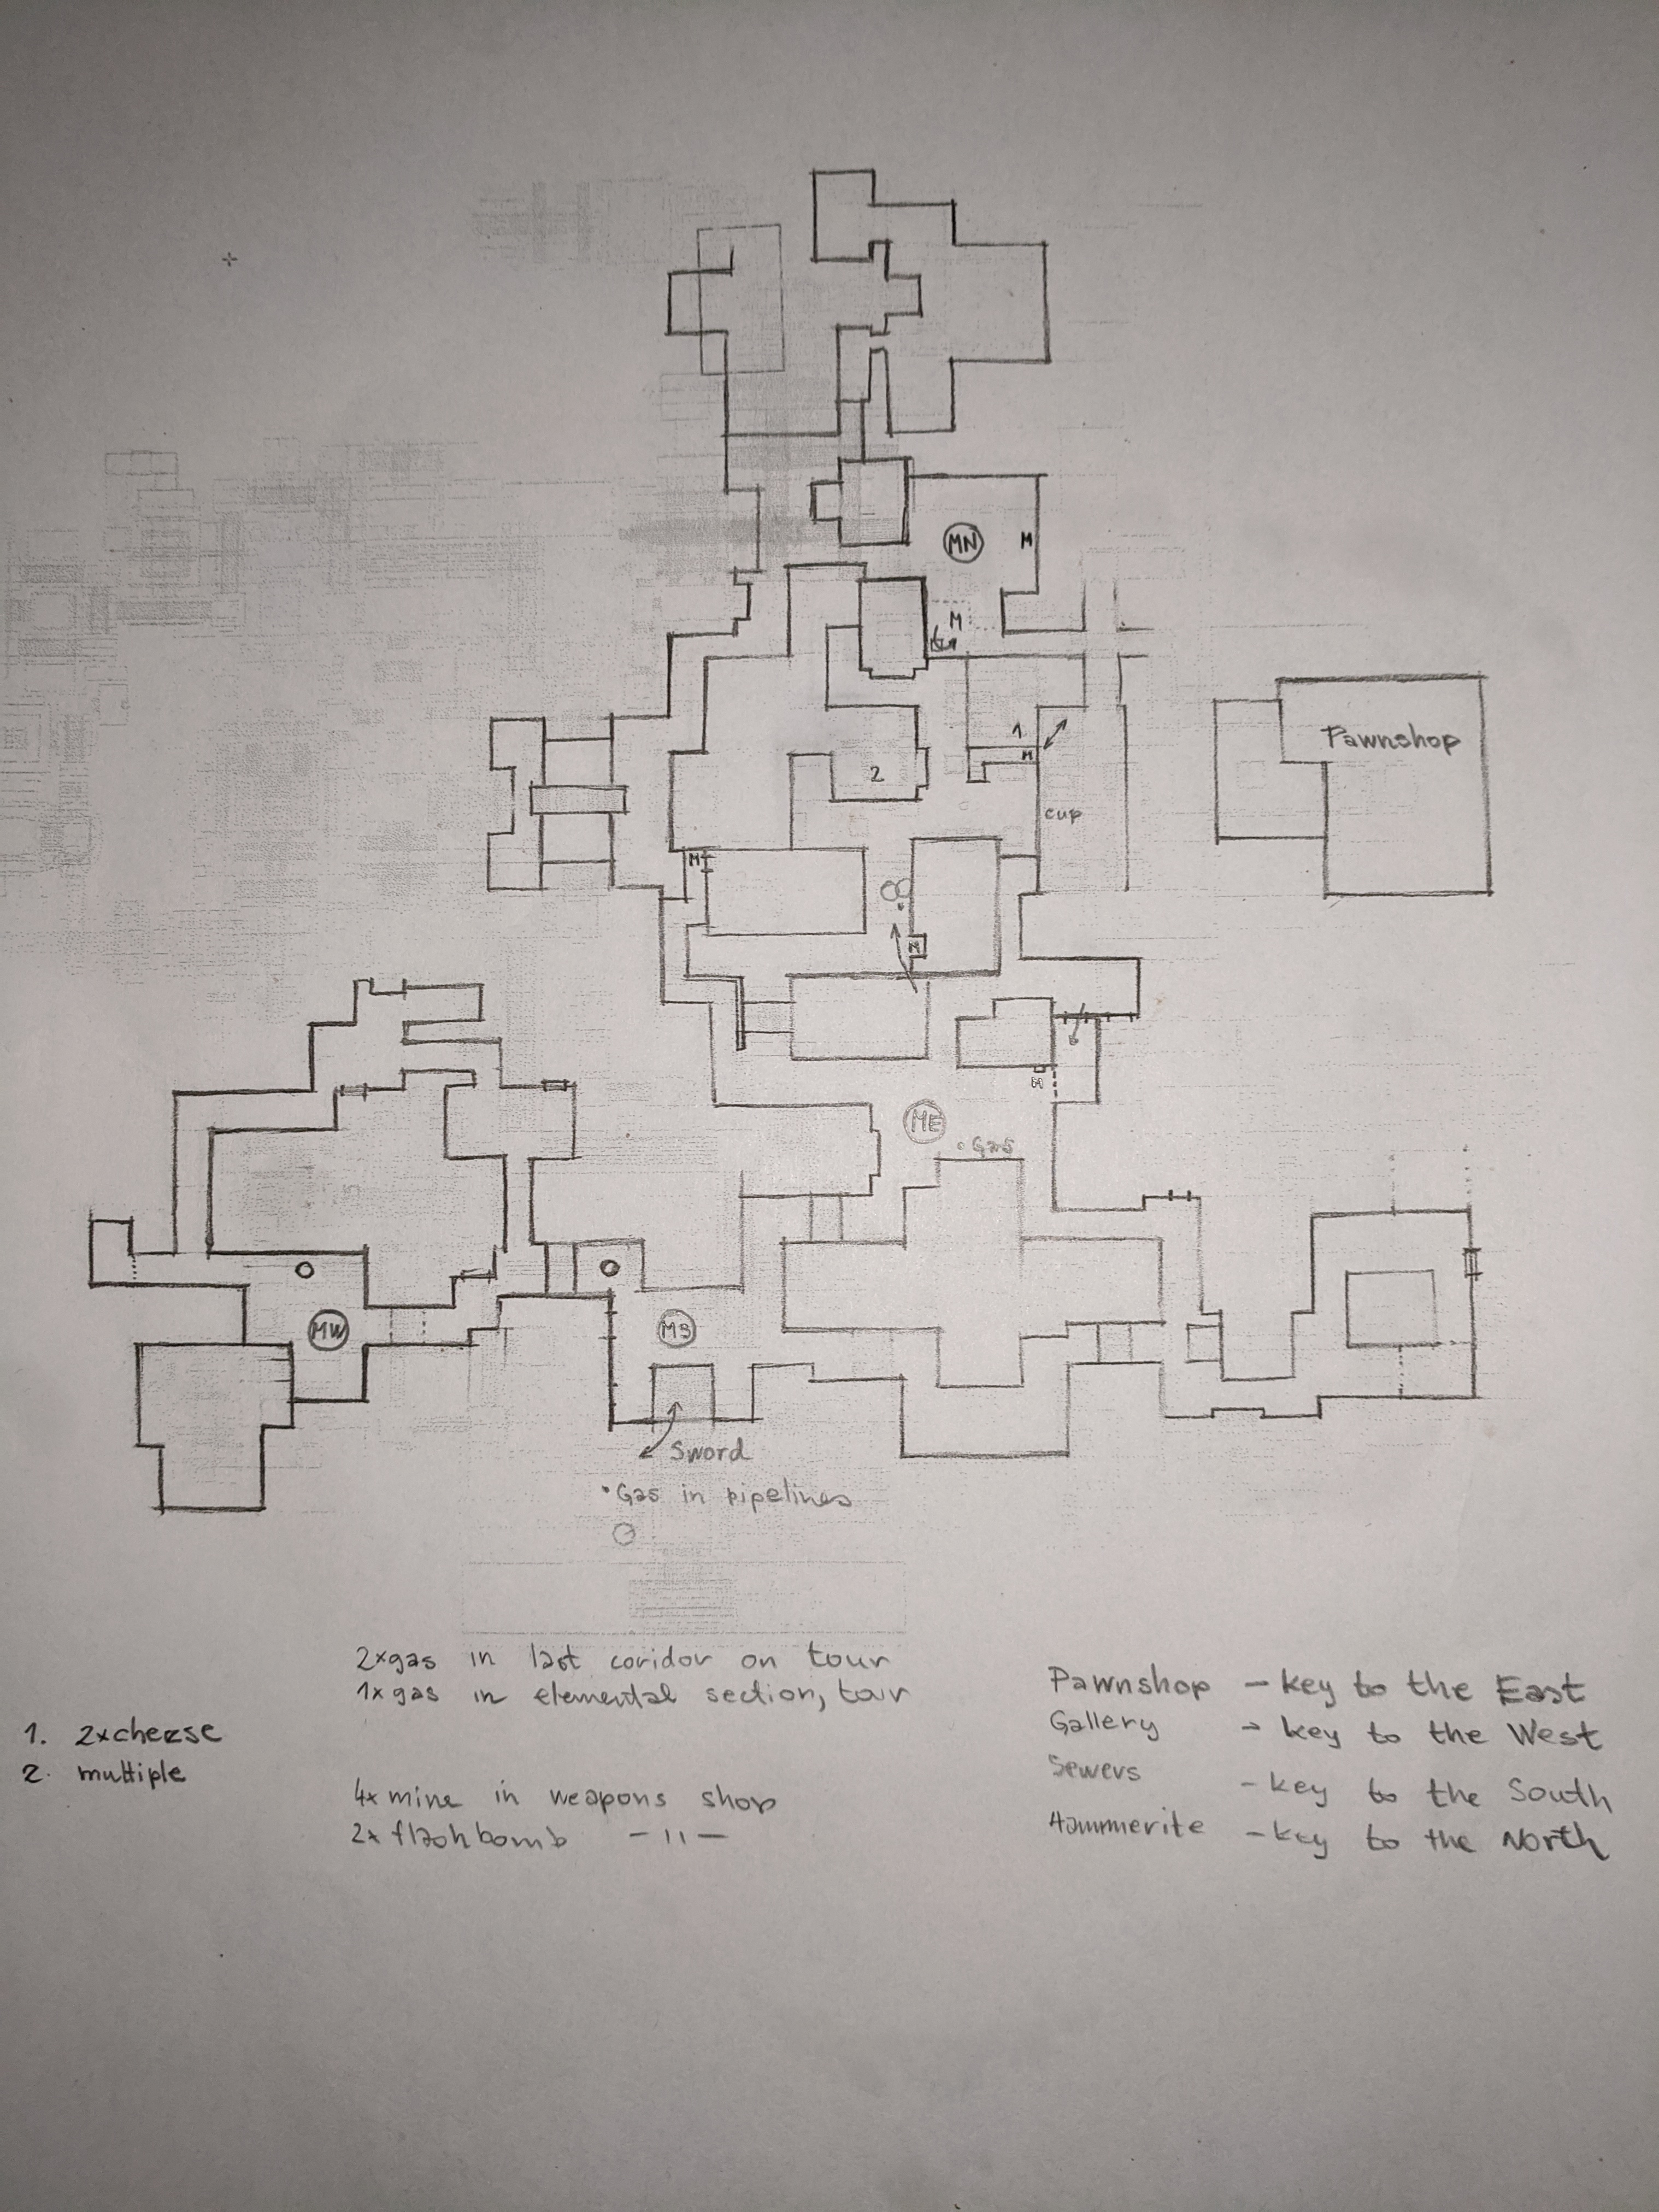 MN
M
M
1
M
2
cup
Pawnshop
M
M
M
ME
Gas
MW
MS
Sword
Gas in pipelines
2xgas in last coridor on tour
1x gas in elemental section, tour
1. 2xcheese
2. multiple
4x mine in weapons shop
2x flashbomb - 11 -
Pawnshop - key to the East
Gallery → key to the West
Sewers - key to the South
Hammerite - key to the North